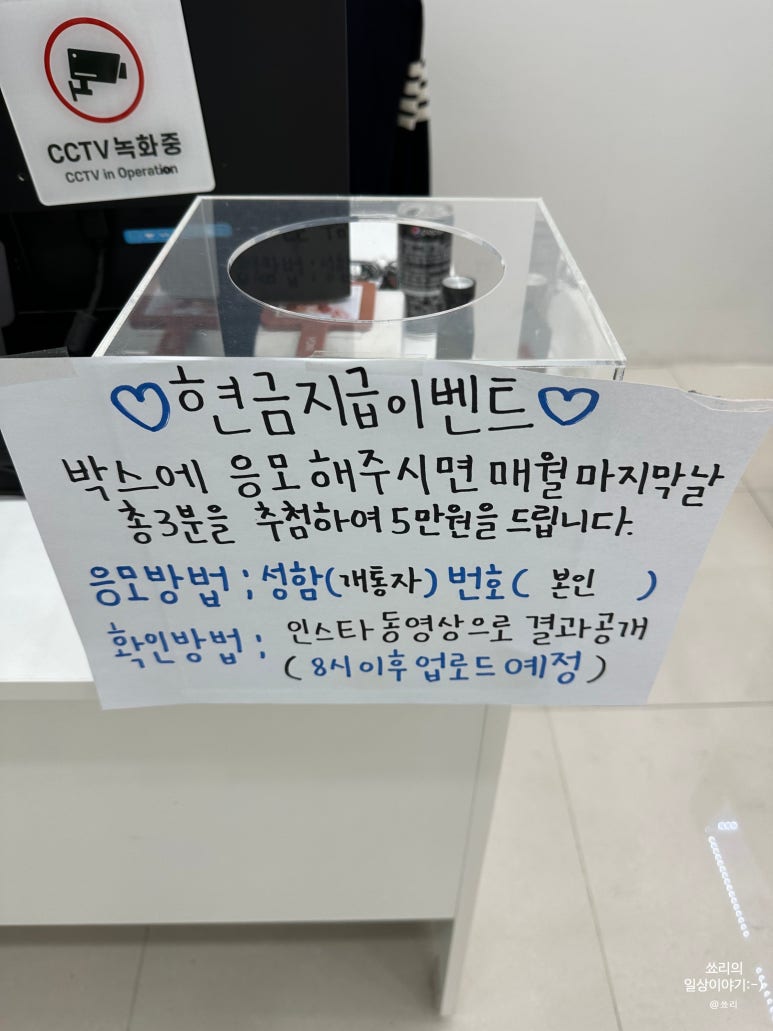 CCTV 녹화 중
CCTV in Operation
♡현금지급이벤트♡
박스에 응모해주시면 매월마지막날
총3분을 추첨하여 5만원을 드립니다.
응모방법 ; 성함(개통자) 번호( 본인 )
확인방법 ; 인스타동영상으로 결과공개
( 8시이후 업로드 예정 )
쑈리의
일상이야기:-)
@쑈리